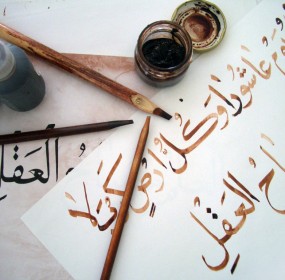 عَاشُورَا وَكُلُّ ارْضٍ كَرْبَلَا
العَقْلِ
العَقْلِ